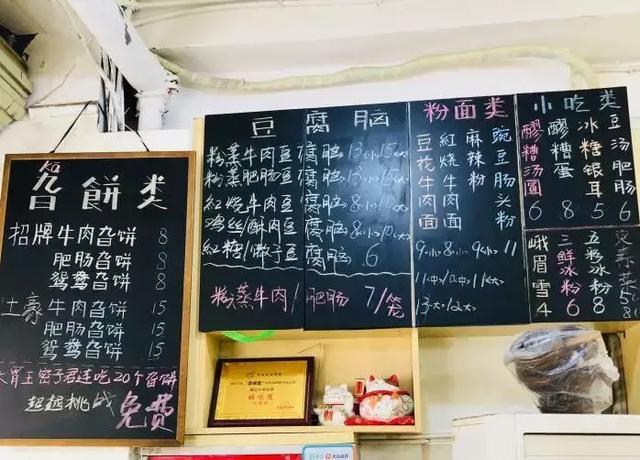 旮饼类
招牌牛肉旮饼 8
肥肠旮饼 8
鸳鸯旮饼 8
土豪牛肉旮饼 15
肥肠旮饼 15
鸳鸯旮饼 15
大胃王密子君连吃20个旮饼
超越挑战 免费
豆腐脑
粉蒸牛肉豆腐脑 13(小)15(大)
粉蒸肥肠豆腐脑 13(小)15(大)
红烧牛肉豆腐脑 8(小)10(大)
鸡丝/酥肉豆腐脑 8(小)10(大)
红糖/馓子豆腐脑 6
粉蒸牛肉/肥肠 7/笼
粉面类
豆花牛肉面
9小
11中
13大
红烧牛肉面
8小
10中
12大
麻辣粉
9(小)
11(大)
豌豆肠头粉
11
小吃类
醪糟汤圆 6
醪糟蛋 8
冰糖银耳 5
豆汤肥肠 6
峨眉雪 4
三鲜冰粉 6
五彩冰粉 8